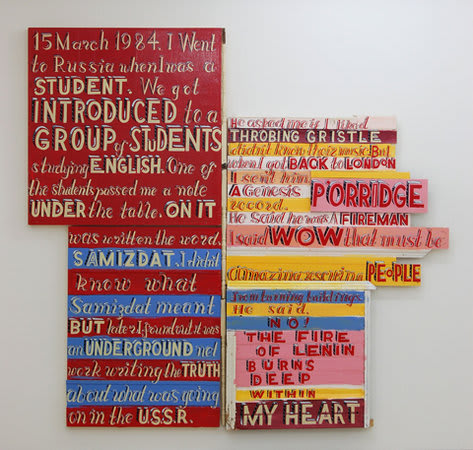 15 March 1984. I Went
to Russia when I was a
STUDENT. We got
INTRODUCED to a
GROUP of STUDENTS
studying ENGLISH. One of
the students passed me a note
UNDER the table. ON IT
was written the word,
SAMIZDAT. I didn't
know what
Samizdat meant
BUT later I found out it was
an UNDERGROUND net
work writing the TRUTH
about what was going
on in the U.S.S.R.
He asked me if I liked
THROBING GRISTLE
I didn't know their music. But
when I got BACK to LONDON
I sent him
A GENESIS PORRIDGE
record.
He said he was A FIREMAN
I said WOW that must be
amazing rescuing PEOPLE
from burning buildings.
He said.
NO!
THE FIRE
OF LENIN
BURNS
DEEP
WITHIN
MY HEART